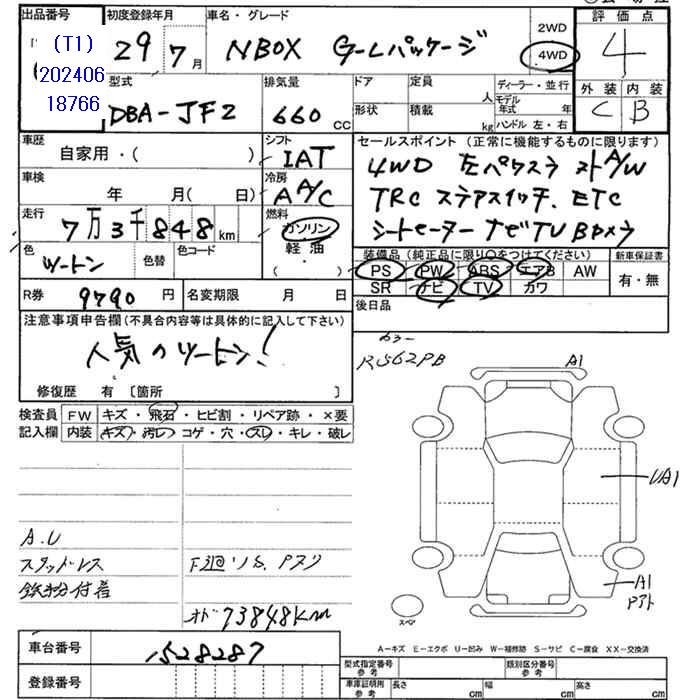 出品番号 初度登録年月 車名・グレード 2WD 評価点
(T1) 29 7月 NBOX G-Lパッケージ 4WD 4
202406
18766
型式 排気量 ドア 定員 人 ディーラー・並行 外装 内装
DBA-JF2 660 CC 形状 積載 kg モデル年式 年 C B
ハンドル 左・右
車歴 シフト セールスポイント (正常に機能するものに限ります)
自家用・( ) IAT 4WD 左パワスラ
車検 冷房 TRC ステアスイッチ. ETC
年 月( 日) A A/C シートヒーター ナビTV Bカメラ
走行 燃料
7万3千848km ガソリン
軽油
(・ )
色 色替 色コード 装備品 (純正品に限り○をつけてください) 新車保証書
ツートン PS PW ABS エアB AW 有・無
SR ナビ TV カワ
R券 9790円 名変期限 月 日 後日品
注意事項申告欄(不具合内容等は具体的に記入して下さい)
人気のツートン!
R562PB
修復歴 有 〔箇所 〕
A1
検査員 FW キズ・飛石・ヒビ割・リペア跡・×要
記入欄 内装 キズ・汚レ・コゲ・穴・スレ・キレ・破レ
UA1
A.U
スタッドレス 下廻りS. Pスリ
鉄粉付着
A1
Pアト
スペア
オド 73848Km
車台番号 1528287
A-キズ E-エクボ U-凹み W-補修跡 S-サビ C-腐食 XX-交換済
登録番号
型式指定番号 参考 類別区分番号 参考
車庫証明用 参考 長さ cm 幅 cm 高さ cm